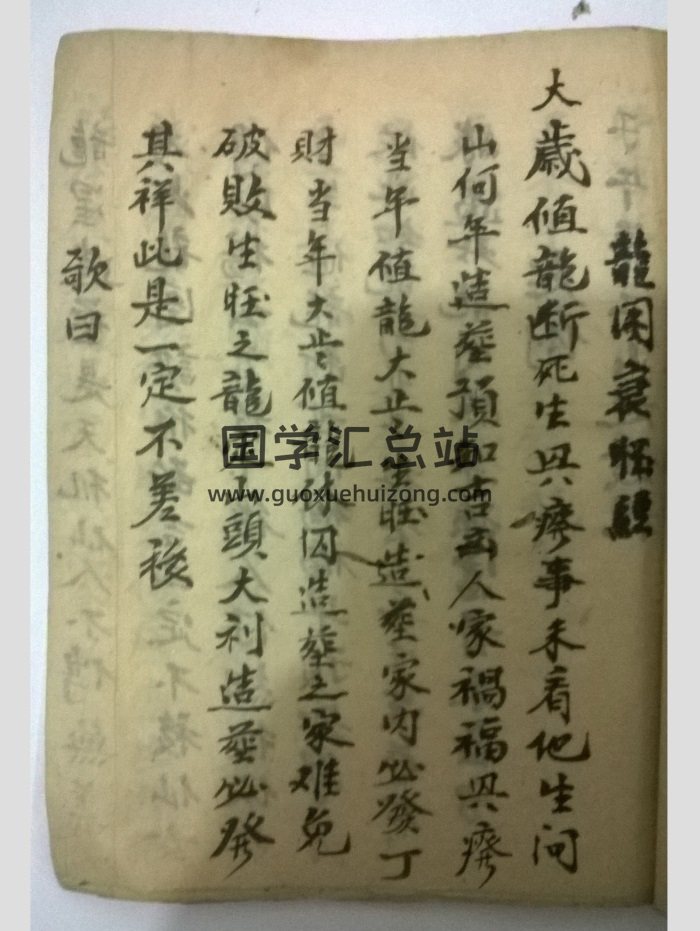 龍图衰旺
大歳值龍断死生興癈事未看他生问
山何年造塟預知吉凶人家禍福興癈
当年值龍大止生旺造塟家内必發丁
財当年大步值龍休囚造塟之家难免
破敗生旺之龍逢山頭大利造塟必發
其祥此是一定不差移
歌曰
国学汇总站
www.guoxuehuizong.com